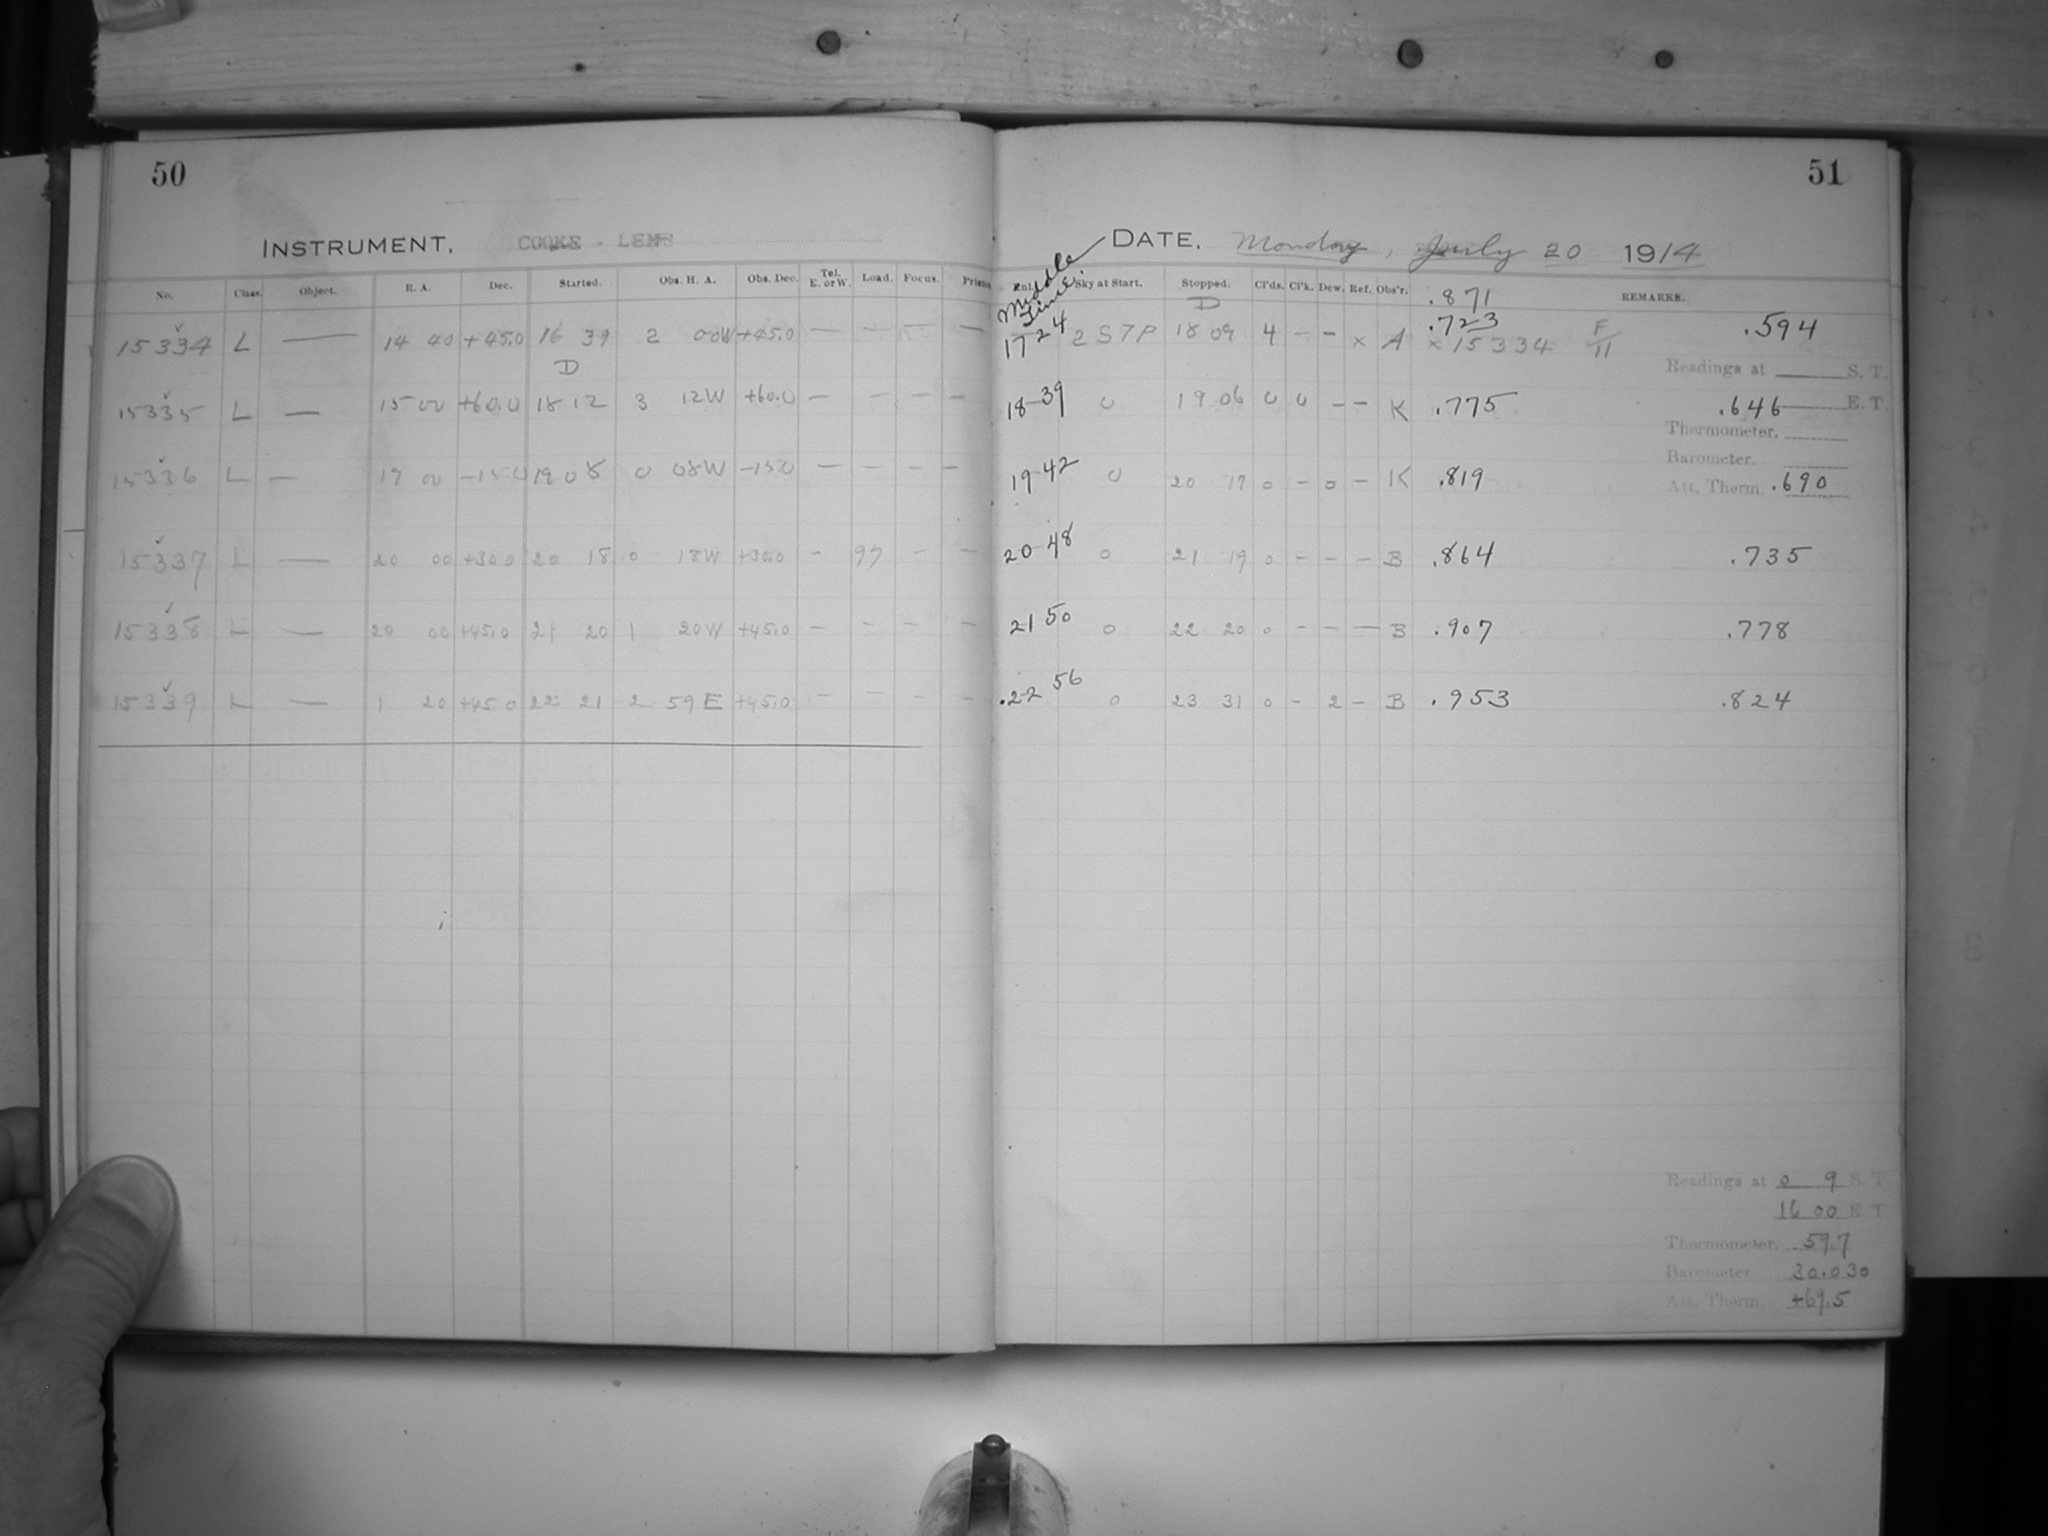 50
51
INSTRUMENT, COOKE - LENS
DATE, Monday, July 20 1914
Middle Time.
No. Class. Object. R. A. Dec. Started. Obs. H. A. Obs. Dec. Tel. E. or W. Load. Focus. Sky at Start. Stopped. Cl'ds. Cl'k. Dew. Ref. Obs'r. REMARKS.
D .871
15334 L — 14 40 +45.0 16 39 2 00W +45.0 — — — — 17 24 2 S 7 P 18 09 4 – – × A .723 .594
D × 15334 F/11
Readings at S. T.
15335 L — 15 00 +60.0 18 12 3 12W +60.0 — — — — 18 39 0 19 06 0 0 – – K .775 .646 E. T.
Thermometer.
Barometer.
15336 L — 19 00 –15.0 19 08 0 08W –15.0 — — — — 19 42 0 20 17 0 – 0 – K .819 Att. Therm. .690
15337 L — 20 00 +30.0 20 18 0 18W +30.0 – 97 – – 20 48 0 21 19 0 – – – B .864 .735
15338 L — 20 00 +45.0 21 20 1 20W +45.0 – – – – 21 50 0 22 20 0 – – — B .907 .778
15339 L — 1 20 +45.0 22 21 2 59 E +45.0 – – – – 22 56 0 23 31 0 – 2 – B .953 .824
Readings at 0 9 S. T.
16 00 E. T.
Thermometer. 59.7
Barometer. 30.030
Att. Therm. +69.5